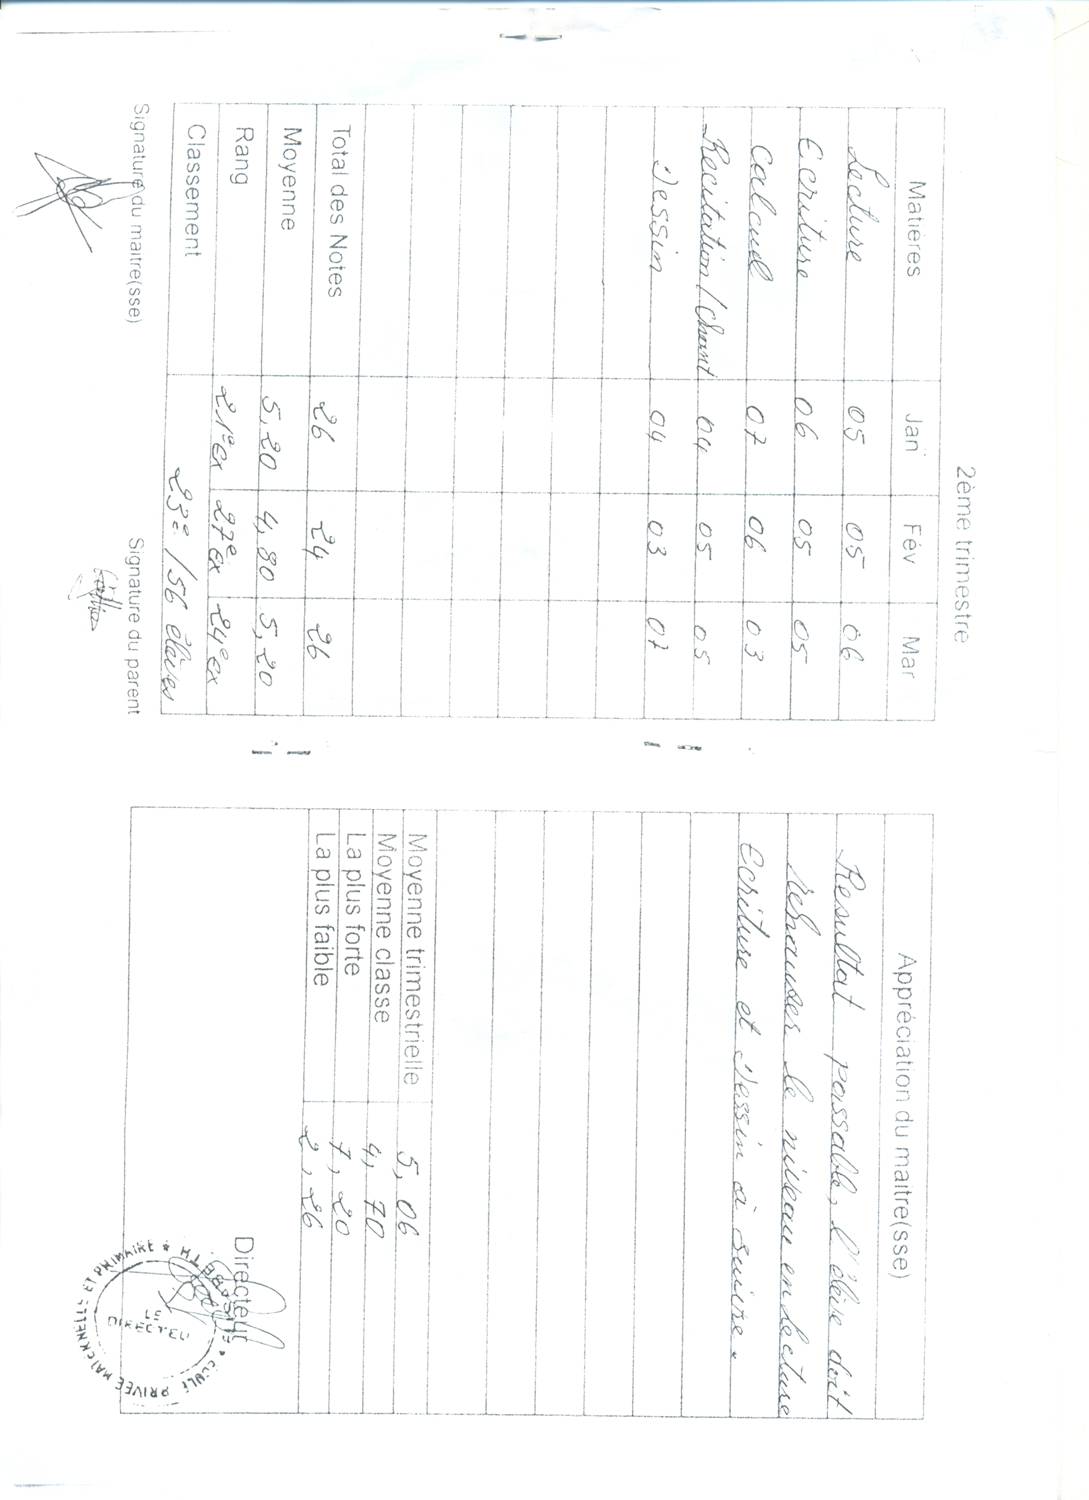 2ème trimestre
Matières Jan Fév Mar
Lecture 05 05 06
Ecriture 06 05 05
Calcul 07 06 03
Recitation/Chant 04 05 05
Dessin 04 03 07
Total des Notes 26 24 26
Moyenne 5,20 4,80 5,20
Rang 21e ex 27e ex 24e ex
Classement 23e /56 élèves
Signature du maitre(sse) Signature du parent
Appréciation du maitre(sse)
Resultat passable, l'élève doit
rehausser le niveau en lecture
Ecriture et Dessin à suivre.
Moyenne trimestrielle 5,06
Moyenne classe 4,70
La plus forte 7,20
La plus faible 2,26
Directeur
ECOLE PRIVEE MATERNELLE ET PRIMAIRE
LE
DIRECTEU